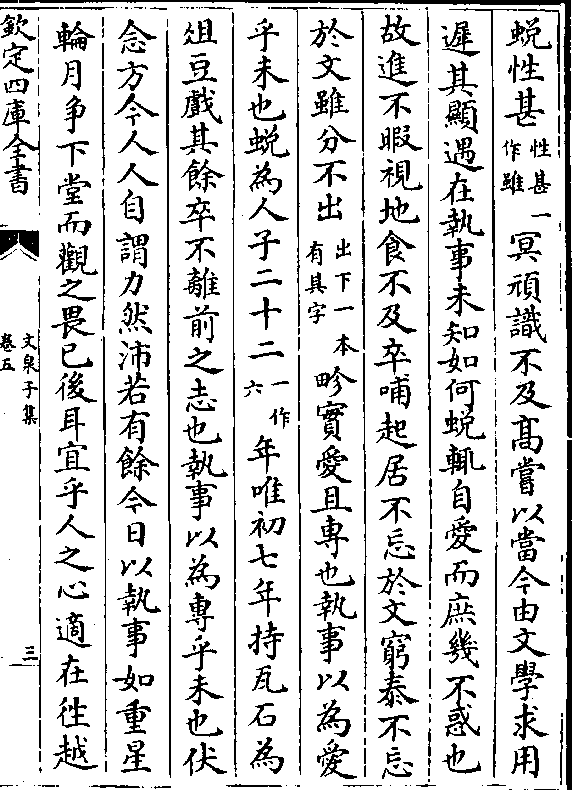 蜕性甚性甚一作雖冥頑識不及髙嘗以當今由文學求用
遲其顯遇在執事未知如何蜕輙自愛而庶幾不惑也
故進不暇視地食不及卒哺起居不忘於文窮泰不忘
於文雖分不出出下一本有其字畛實愛且専也執事以為愛
乎未也蜕為人子二十二一作六年唯初七年持瓦石為
俎豆戲其餘卒不離前之志也執事以為専乎未也伏
念方今人人自謂力然沛若有餘今日以執事如重星
輪月争下堂而觀之畏已後耳宜乎人之心適在徃越
欽定四庫全書
文泉子集
卷五
三